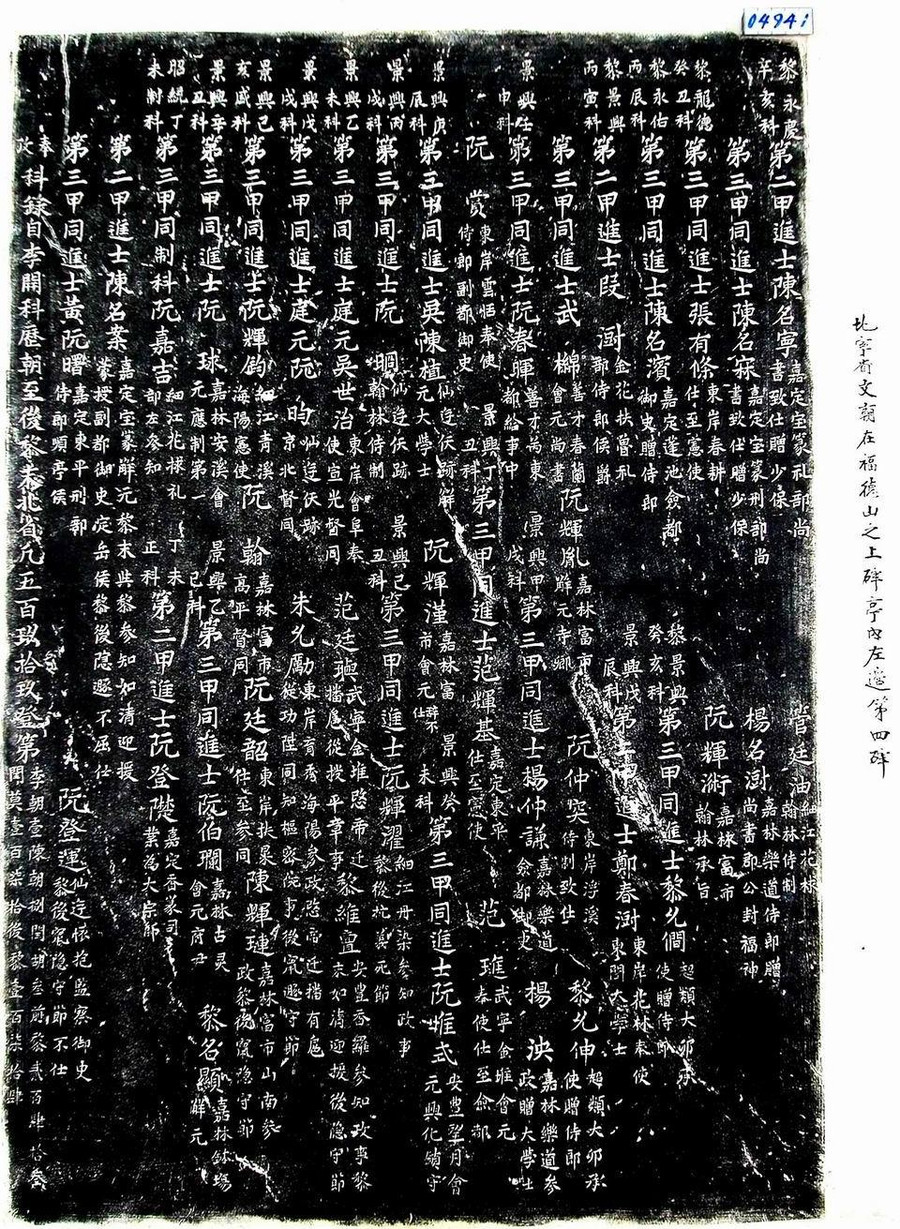 0494
北寧省文廟在福德山之上碑亭內左邊第四碑
黎永慶辛亥科 第二甲進士陳名寧 嘉定宝篆礼部尚書致仕贈少保 管廷油 細江花棣翰林侍制
第三甲同進士陳名寀 嘉定宝篆刑部尚書致仕贈少保 楊名澍 嘉林樂道侍郎贈尚書郡公封福神
黎龍德癸丑科 第三甲同進士張有條 東岸春耕仕至憲使 阮輝漸 嘉林富市翰林承旨
黎永佑丙辰科 第三甲同進士陳名濱 嘉定蓬池僉都御史贈侍郎 黎景興癸亥科 第三甲同進士黎允僩 超類大卯承使贈侍郎
黎景興丙寅科 第二甲進士段澍 金花扶魯礼部侍郎侯爵 景興戊辰科 第二甲進士鄭春澍 東岸花林奉使東閣大學士
第三甲同進士武棉 善才春蘭會元尚書 阮輝胤 嘉林富市解元寺卿 阮仲突 東岸浮溪侍制致仕 黎允伸 超類大卯承使贈侍郎
景興壬申科 第三甲同進士阮春暉 善才尚東都給事中 景興甲戌科 第三甲同進士楊仲謙 嘉林樂道僉都御史 楊泱 嘉林樂道參政贈大學士
阮賞 東岸雲恬奉使侍郎副都御史 景興丁丑科 第三甲同進士范輝基 嘉定東平仕至憲使 范璡 武寧金堆會元奉使仕至僉都
景興庚辰科 第三甲同進士吳陳植 仙遊伕跡解元大學士 阮輝漌 嘉林富市會元仕 景興癸未科 第三甲同進士阮惟式 安豊望月會元興化鎮守
景興丙戌科 第三甲同進士阮𣈜 仙遊伕跡翰林侍制 景興己丑科 第三甲同進士阮輝濯 細江丹染參知政事黎後抗漠元節
景興乙未科 第三甲同進士庭元吳世治 東岸會阜奉使宣光督同 范廷璵 武寧金堆愍帝迁播扈從授平章事 黎維亶 安豊香羅參知政事黎末如清迎援後隐守節
景興戊戌科 第三甲同進士庭元阮昀 仙遊伕跡京北督同 朱允勵 東岸育秀海陽參政愍帝迁播有扈從功陞同知樞密院事後竄遯守節
景興己亥盛科 第三甲同進士阮輝鈞 細江青溪海陽憲使 阮翰 嘉林富市高平督同 阮廷韶 東岸扶䍡仕至參同 陳輝璉 嘉林富市山南參政黎後竄隐守節
景興辛丑科 第三甲同進士阮球 嘉林安溪會元應制第一 景興乙巳科 第三甲同進士阮伯瓓 嘉林古灵會元府尹 黎名顯 嘉林鉢塲解元
昭統丁未制科 第三甲同制科阮嘉吉 細江花棣礼部左參知 丁未正科 第二甲進士阮登㰚 嘉定香篆司業為大宗師
第二甲進士陳名案 嘉定宝篆解元黎末與黎參知如清迎援蒙授副都御史定岳侯黎後隐遯不屈仕
第三甲同進士黃阮曙 嘉定東平刑部侍郎項亭侯 阮登運 仙遊懷抱監察御史黎後竄隐守節不仕
奉攷科錄自李開科歷朝至後黎末北省凢五百玖拾玖登第 李朝壹陳朝捌閏胡叁前黎貳百肆拾叁閏莫壹百柒拾後黎壹百柒拾肆